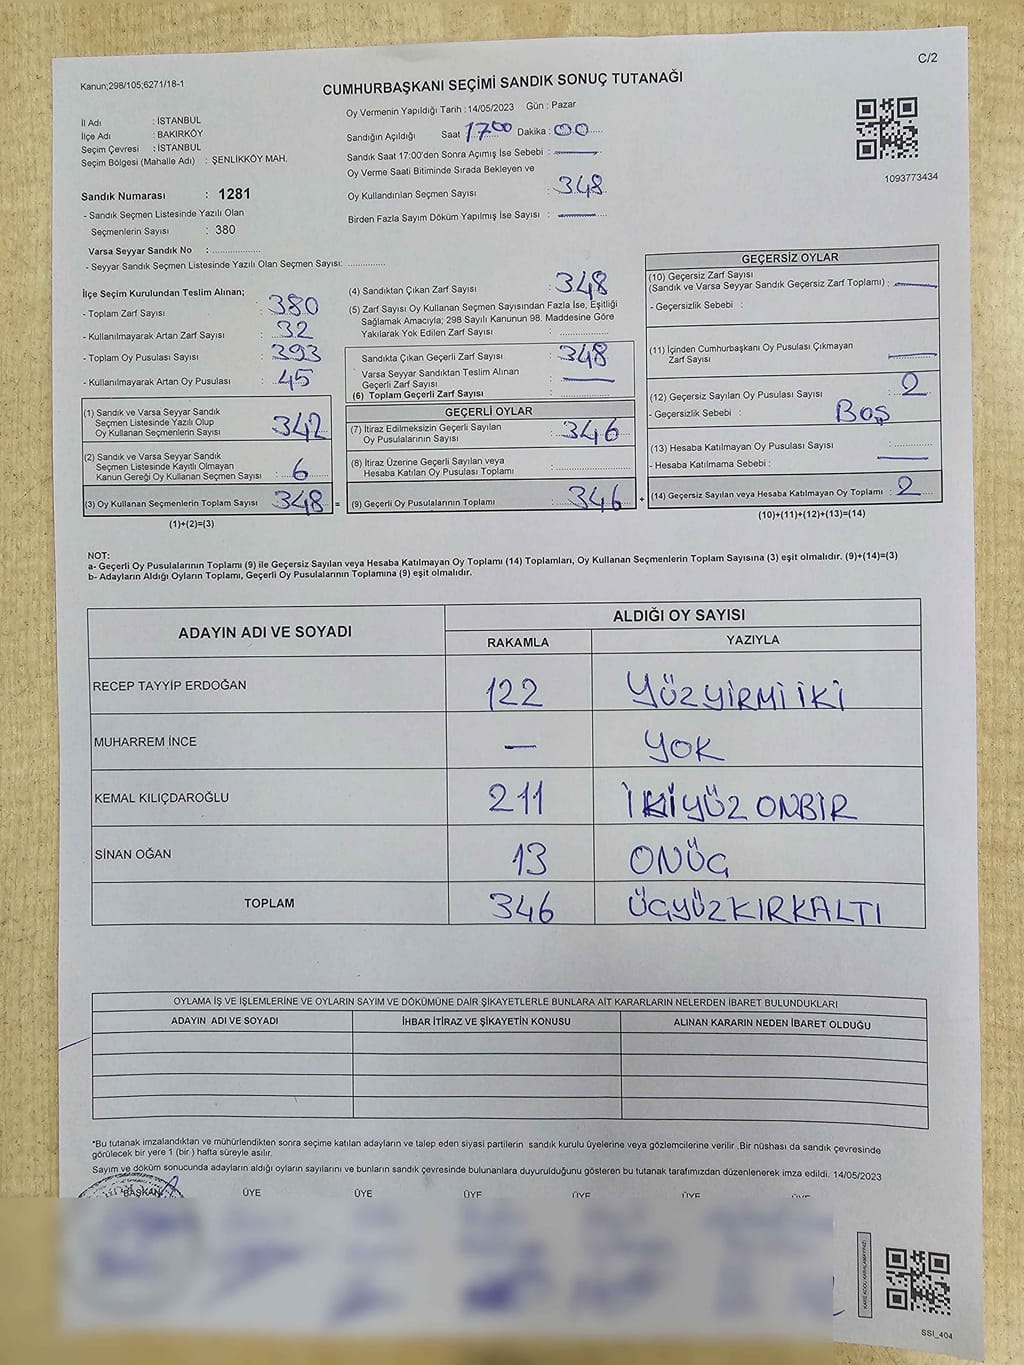 C/2
Kanun;298/105;6271/18-1
CUMHURBAŞKANI SEÇİMİ SANDIK SONUÇ TUTANAĞI
İl Adı : İSTANBUL
İlçe Adı : BAKIRKÖY
Seçim Çevresi : İSTANBUL
Seçim Bölgesi (Mahalle Adı) : ŞENLİKKÖY MAH.
Sandık Numarası : 1281
- Sandık Seçmen Listesinde Yazılı Olan
Seçmenlerin Sayısı : 380
Varsa Seyyar Sandık No : ..................
- Seyyar Sandık Seçmen Listesinde Yazılı Olan Seçmen Sayısı: ..............
Oy Vermenin Yapıldığı Tarih : 14/05/2023 Gün : Pazar
Sandığın Açıldığı Saat 17:00 Dakika : 00
Sandık Saat 17:00'den Sonra Açımış İse Sebebi : —
Oy Verme Saati Bitiminde Sırada Bekleyen ve
Oy Kullandırılan Seçmen Sayısı : 348
Birden Fazla Sayım Döküm Yapılmış İse Sayısı : —
1093773434
İlçe Seçim Kurulundan Teslim Alınan;
- Toplam Zarf Sayısı : 380
- Kullanılmayarak Artan Zarf Sayısı : 32
- Toplam Oy Pusulası Sayısı : 393
- Kullanılmayarak Artan Oy Pusulası : 45
(1) Sandık ve Varsa Seyyar Sandık
Seçmen Listesinde Yazılı Olup
Oy Kullanan Seçmenlerin Sayısı : 342
(2) Sandık ve Varsa Seyyar Sandık
Seçmen Listesinde Kayıtlı Olmayan
Kanun Gereği Oy Kullanan Seçmen Sayısı : 6
(3) Oy Kullanan Seçmenlerin Toplam Sayısı : 348 =
(1)+(2)=(3)
(4) Sandıktan Çıkan Zarf Sayısı : 348
(5) Zarf Sayısı Oy Kullanan Seçmen Sayısından Fazla İse, Eşitliği
Sağlamak Amacıyla; 298 Sayılı Kanunun 98. Maddesine Göre
Yakılarak Yok Edilen Zarf Sayısı : ..............
Sandıkta Çıkan Geçerli Zarf Sayısı : 348
Varsa Seyyar Sandıktan Teslim Alınan
Geçerli Zarf Sayısı : —
(6) Toplam Geçerli Zarf Sayısı : ..............
GEÇERLİ OYLAR
(7) İtiraz Edilmeksizin Geçerli Sayılan
Oy Pusulalarının Sayısı : 346
(8) İtiraz Üzerine Geçerli Sayılan veya
Hesaba Katılan Oy Pusulası Toplamı : ..............
(9) Geçerli Oy Pusulalarının Toplamı : 346 +
GEÇERSİZ OYLAR
(10) Geçersiz Zarf Sayısı
(Sandık ve Varsa Seyyar Sandık Geçersiz Zarf Toplamı) : —
- Geçersizlik Sebebi :
(11) İçinden Cumhurbaşkanı Oy Pusulası Çıkmayan
Zarf Sayısı —
(12) Geçersiz Sayılan Oy Pusulası Sayısı : 2
- Geçersizlik Sebebi : BOŞ
(13) Hesaba Katılmayan Oy Pusulası Sayısı : —
- Hesaba Katılmama Sebebi :
(14) Geçersiz Sayılan veya Hesaba Katılmayan Oy Toplamı : 2
(10)+(11)+(12)+(13)=(14)
NOT:
a- Geçerli Oy Pusulalarının Toplamı (9) ile Geçersiz Sayılan veya Hesaba Katılmayan Oy Toplamı (14) Toplamları, Oy Kullanan Seçmenlerin Toplam Sayısına (3) eşit olmalıdır. (9)+(14)=(3)
b- Adayların Aldığı Oyların Toplamı, Geçerli Oy Pusulalarının Toplamına (9) eşit olmalıdır.
ADAYIN ADI VE SOYADI
ALDIĞI OY SAYISI
RAKAMLA YAZIYLA
RECEP TAYYİP ERDOĞAN 122 YÜZYİRMİ İKİ
MUHARREM İNCE — YOK
KEMAL KILIÇDAROĞLU 211 İKİYÜZ ONBİR
SİNAN OĞAN 13 ONÜÇ
TOPLAM 346 ÜÇYÜZKIRKALTI
OYLAMA İŞ VE İŞLEMLERİNE VE OYLARIN SAYIM VE DÖKÜMÜNE DAİR ŞİKAYETLERLE BUNLARA AİT KARARLARIN NELERDEN İBARET BULUNDUKLARI
ADAYIN ADI VE SOYADI İHBAR İTİRAZ VE ŞİKAYETİN KONUSU ALINAN KARARIN NEDEN İBARET OLDUĞU
*Bu tutanak imzalandıktan ve mühürlendikten sonra seçime katılan adayların ve talep eden siyasi partilerin sandık kurulu üyelerine veya gözlemcilerine verilir .Bir nüshası da sandık çevresinde
görülecek bir yere 1 (bir ) hafta süreyle asılır.
Sayım ve döküm sonucunda adayların aldığı oyların sayılarını ve bunların sandık çevresinde bulunanlara duyurulduğunu gösteren bu tutanak tarafımızdan düzenlenerek imza edildi. 14/05/2023
BAŞKAN ÜYE ÜYE ÜYE ÜYE ÜYE ÜYE
KARE KODU KARALAMAYINIZ!
SSI_404